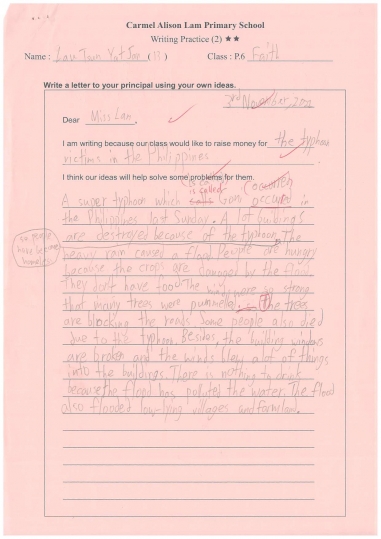 Carmel Alison Lam Primary School
Writing Practice (2) ★★
Name : Lau Tsun Yat Jon ( ) Class : P.6 Faith
Write a letter to your principal using your own ideas.
3rd November, 2020
Dear Miss Lam,
I am writing because our class would like to raise money for the typhoon
victims in the Philippines.
I think our ideas will help solve some problems for them.
is called
A super typhoon which Goni occured in
the Philippines last Sunday. A lot buildings
are destroyed because of the typhoon. The
so people
have become
homeless
heavy rain caused a flood. People are hungry
because the crops are damaged by the flood.
They don't have food. The winds were so strong
that many trees were pummeled. The trees
are blocking the roads. Some people also died
due to the typhoon. Besides, the building windows
are broken and the winds blew a lot of things
into the buildings. There is nothing to drink
because the flood has polluted the water. The flood
also flooded low-lying villages and farmland.